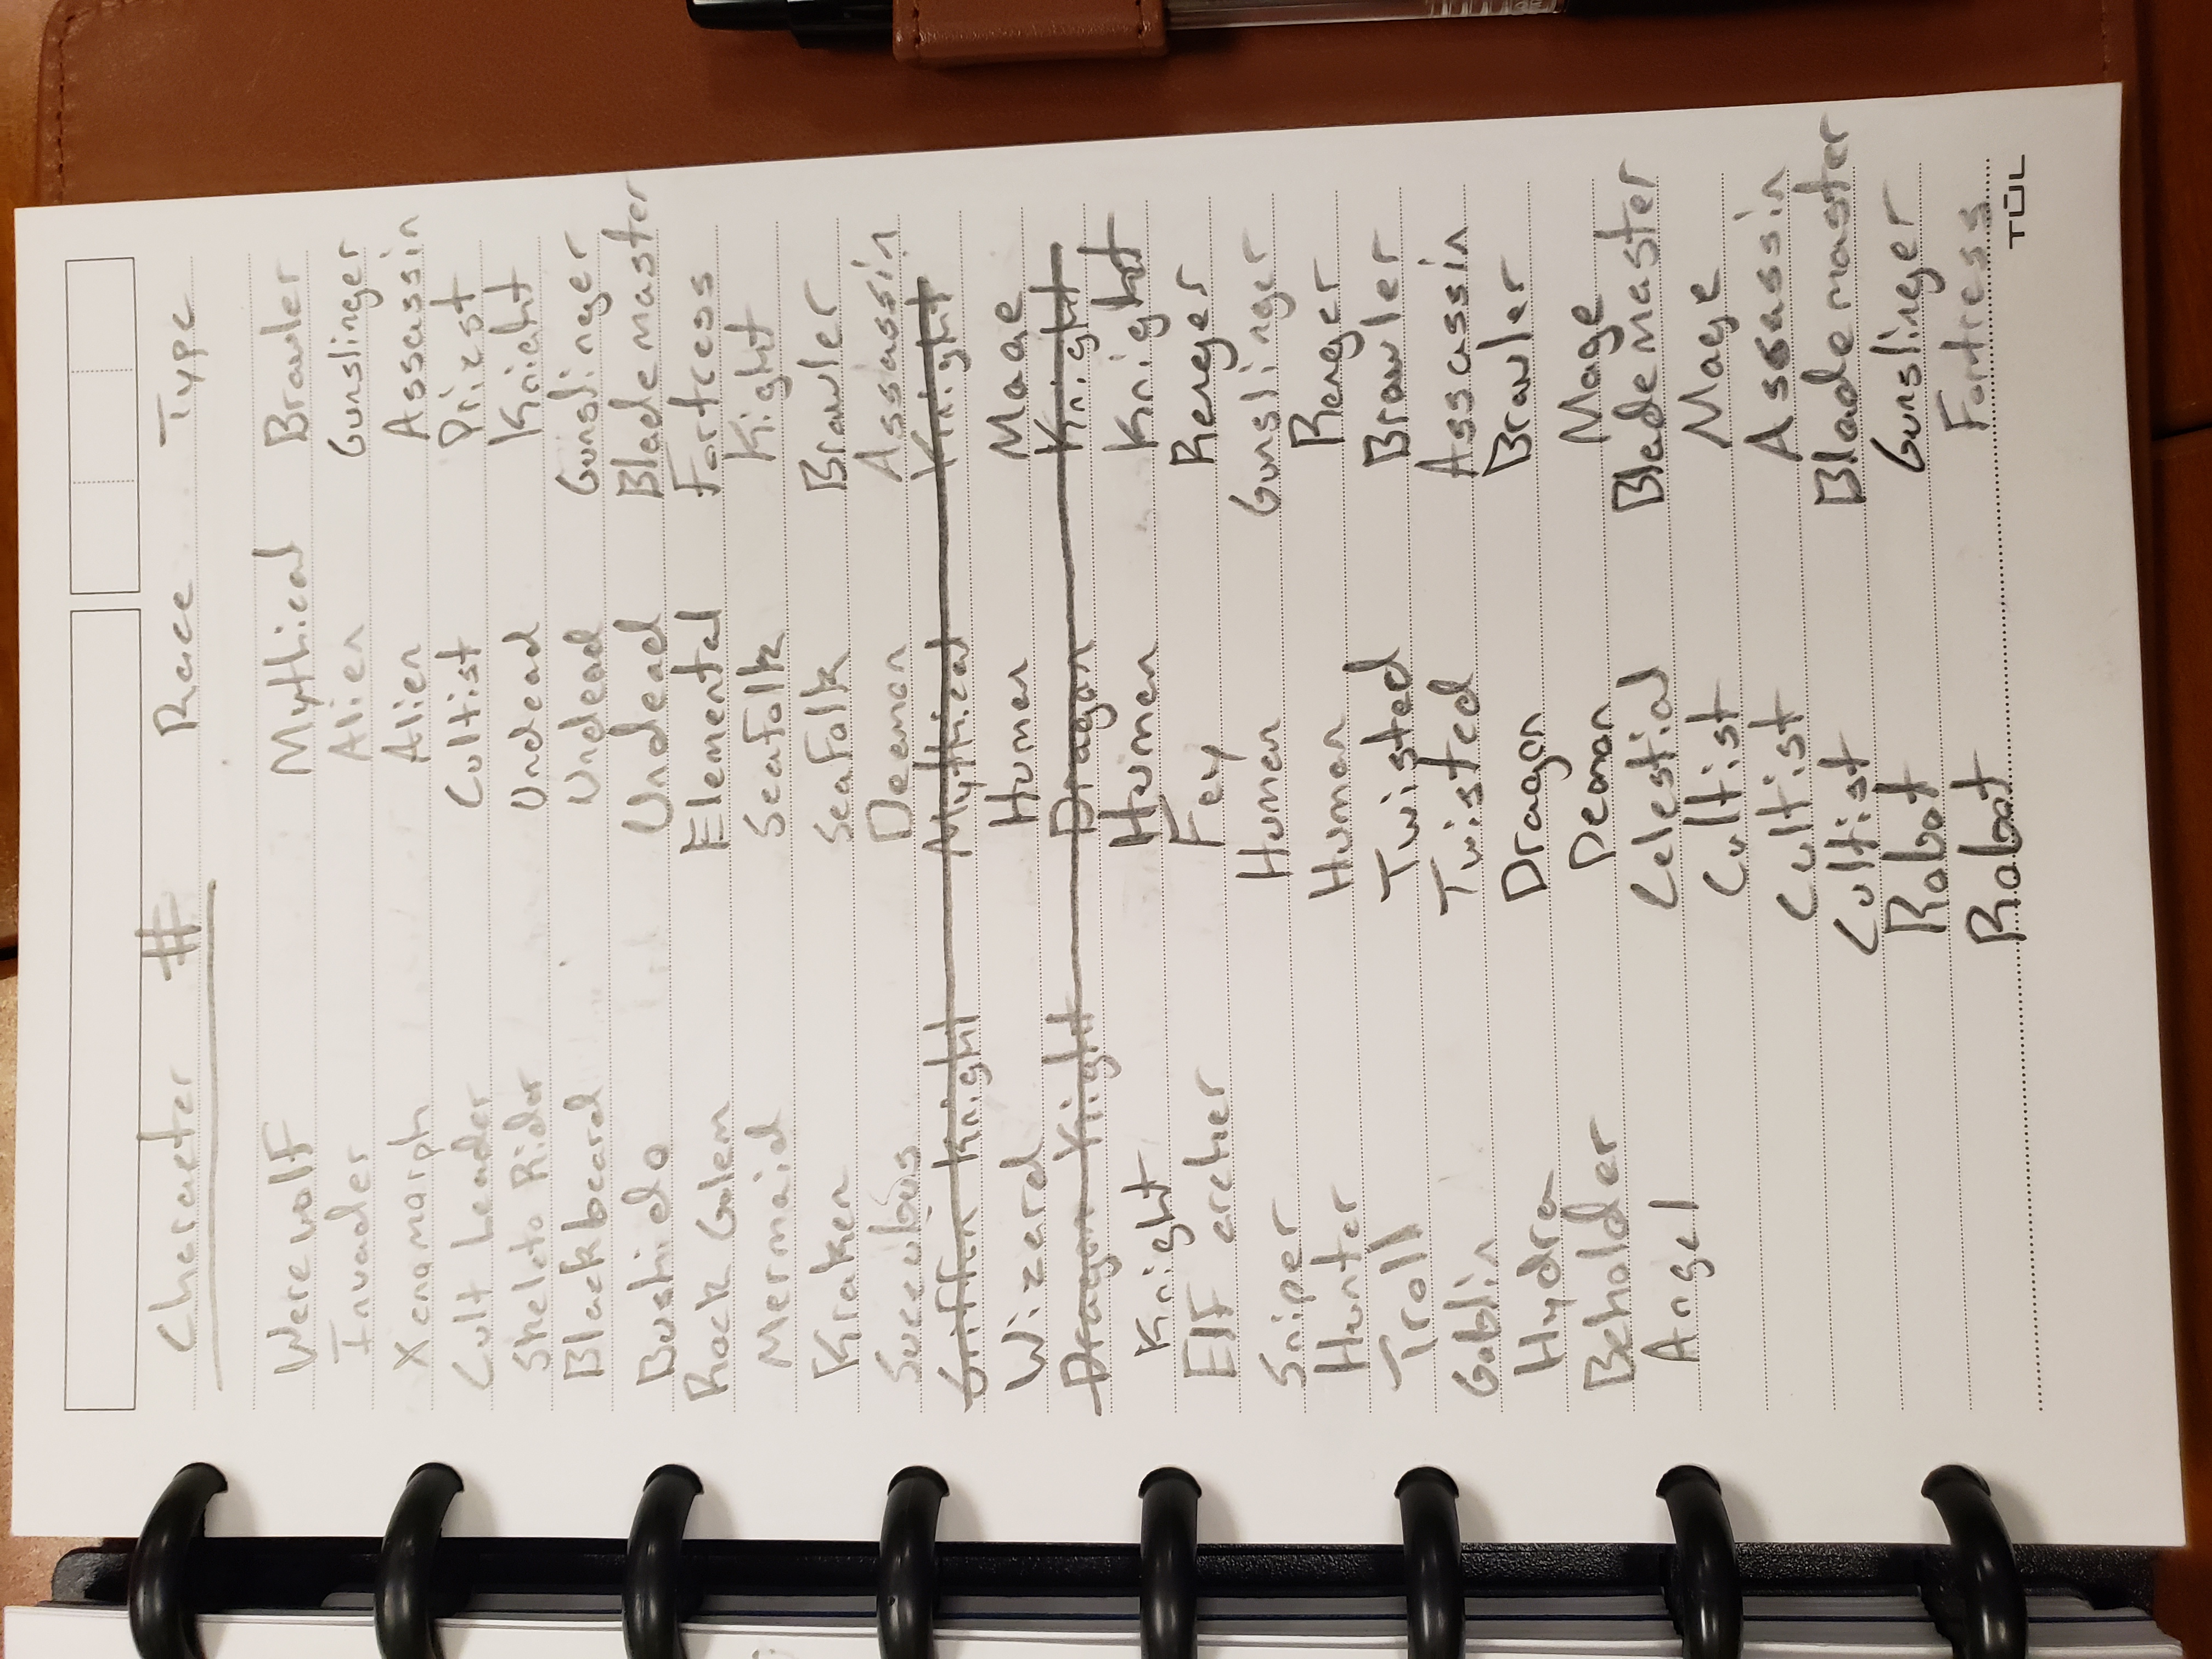 Character # Race Type
Werewolf Mythical Brawler
Invader Alien Gunslinger
Xenomorph Alien Assassin
Cult Leader Cultist Priest
Skeleto Rider Undead Knight
Blackbeard Undead Gunslinger
Bushido Undead Blademaster
Rock Golem Elemental Fortress
Mermaid Seafolk Kight
Kraken Seafolk Brawler
Succubus Deamon Assassin
Griffin Knight Mythical Knight
Wizard Human Mage
Dragon Kight Dragon Knight
Knight Human Knight
Elf archer Fey Ranger
Sniper Human Gunslinger
Hunter Human Ranger
Troll Twisted Brawler
Goblin Twisted Assassin
Hydra Dragon Brawler
Beholder Demon Mage
Angel Celestial Blademaster
Cultist Mage
Cultist Assassin
Cultist Blademaster
Robot Gunslinger
Robot Fortress
TŪL